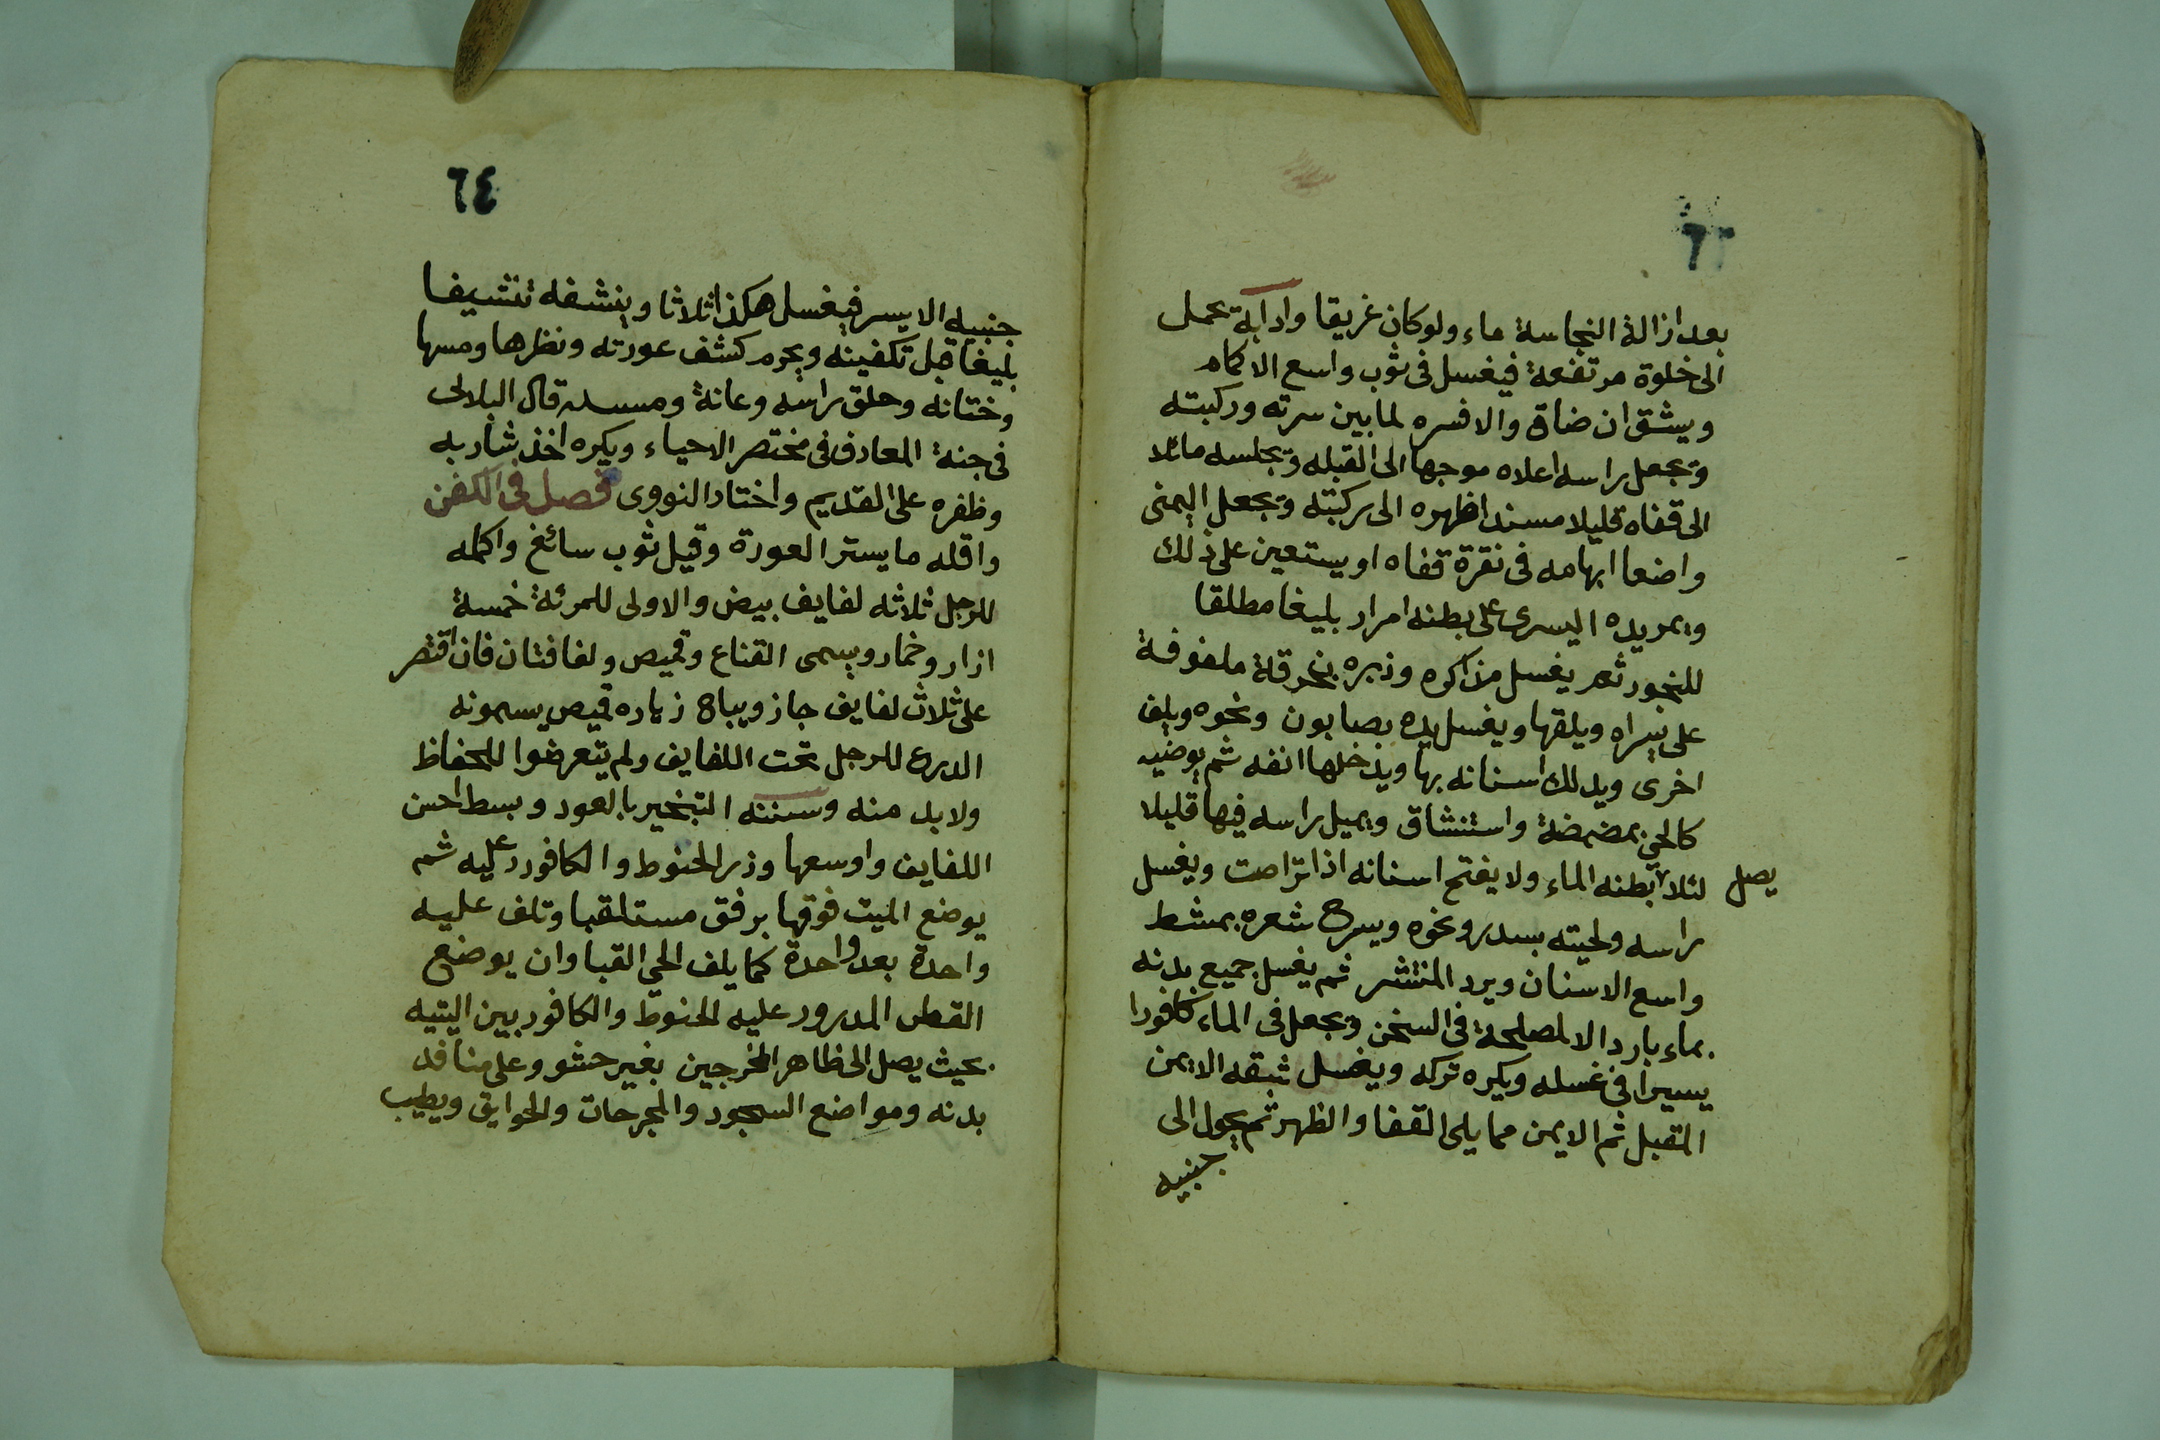 ٦٣
بعد ازالة النجاسة ماء ولو كان غريقا وادابه يحمل
الى خلوة مرتفعة فيغسل فى ثوب واسع الاكمام
ويشق ان ضاق والافسره لما بين سرته وركبته
ويجعل راسه اعلاه موجها الى القبله ويجلسه مائلا
الى قفاه قليلا مسندا ظهره الى ركبته ويجعل اليمنى
واضعا ابهامه فى نقرة قفاه او يستعين على ذلك
ويمر يده اليسرى على بطنه امرار بليغا مطلقا
للبخور ثم يغسل مذاكره ودبره بخرقة ملفوفة
على يسراه ويلقها ويغسل يده بصابون ونحوه ويلف
اخرى ويدلك اسنانه بها ويدخلها انفه ثم يوضيه
كالحى بمضمضة واستنشاق ويميل راسه فيها قليلا
لئلا يصل بطنه الماء ولا يفتح اسنانه اذا تراصت ويغسل
راسه ولحيته بسدر ونحوه ويسرح شعره بمشط
واسع الاسنان ويرد المنتشر ثم يغسل جميع بدنه
بماء بارد الا لمصلحة فى السخن ويجعل فى الماء كافورا
يسيرا فى غسله ويكره تركه ويغسل شقه الايمن
المقبل ثم الايمن مما يلى القفا والظهر ثم يحول الى
جنبيه
٦٤
جنبيه الايسر فيغسل هكذا ثلاثا وينشفه تنشيفا
بليغا قبل تكفينه ويحرم كشف عورته ونظرها ومسها
وختانه وحلق راسه وعانة ومسسه قال البلالى
فى جنة المعارف فى مختصر الاحياء ويكره اخذ شاربه
وظفره على القديم واختار النووى فصل فى الكفن
واقله ما يستر العورة وقيل ثوب سائغ واكمله
للرجل ثلاثه لفايف بيض والاولى للمرئة خمسة
ازار وخمار ويسمى القناع وقميص ولفافتان فان اقتصر
على ثلاث لفايف جاز ويباح زياده قميص يسمونه
الدرع للرجل تحت اللفايف ولم يتعرضوا للحفاظ
ولا بد منه وسننه التبخير بالعود وبسط احسن
اللفايف واوسعها وذر الحنوط والكافور عليه ثم
يوضع الميت فوقها برفق مستلقيا وتلف عليه
واحدة بعد واحدة كما يلف الحي القبا وان يوضع
القطن المدرور عليه الحنوط والكافور بين اليتيه
بحيث يصل الى ظاهر المخرجين بغير حشو وعلى منافد
بدنه ومواضع السجود والمجرحات والحوايق ويطيب